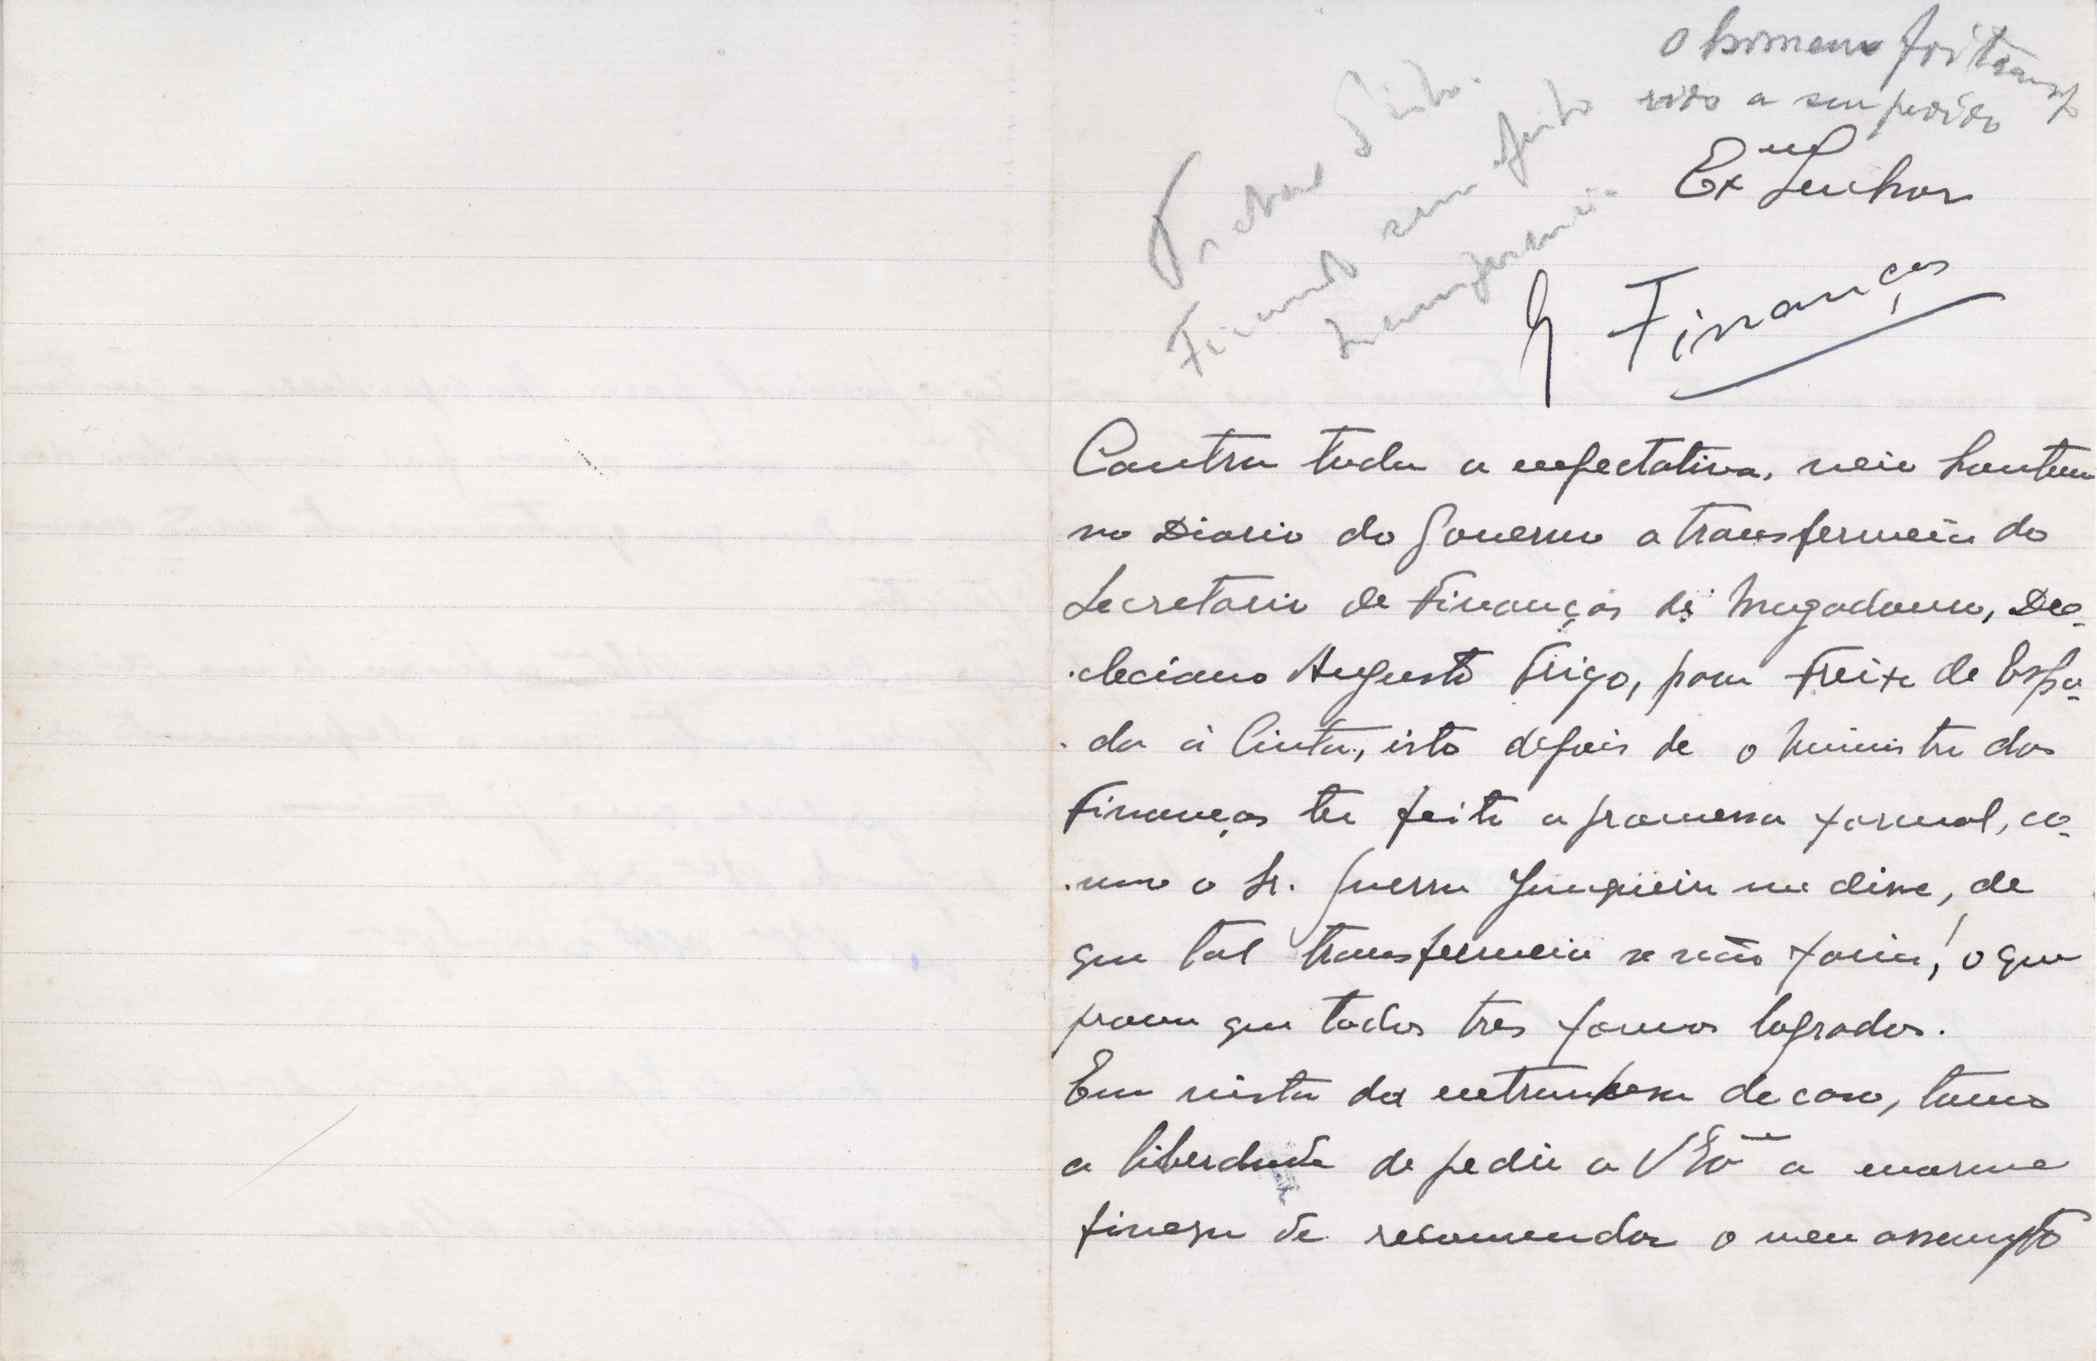 o homem foi transfe
rido a seu pedido
Ficando sem efeito
transferencia
Exmo Senhor
Finanças
Contra toda a espectativa, veio hontem
no Diario do Governo a transferencia do
Secretario de Finanças de Mogadouro, Deo-
-cleciano Augusto Trigo, para Freixo de Espa-
-da á Cinta, isto depois de o ministro das
Finanças ter feito a promessa formal, co-
-mo o Sr. Guerra Junqueiro me disse, de
que tal transferencia se não faria, o que
prova que todos tres fomos logrados.
Em vista da extranhesa do caso, tomo
a liberdade de pedir a V Exa a enorme
finesa de recomendar o meu assumpto